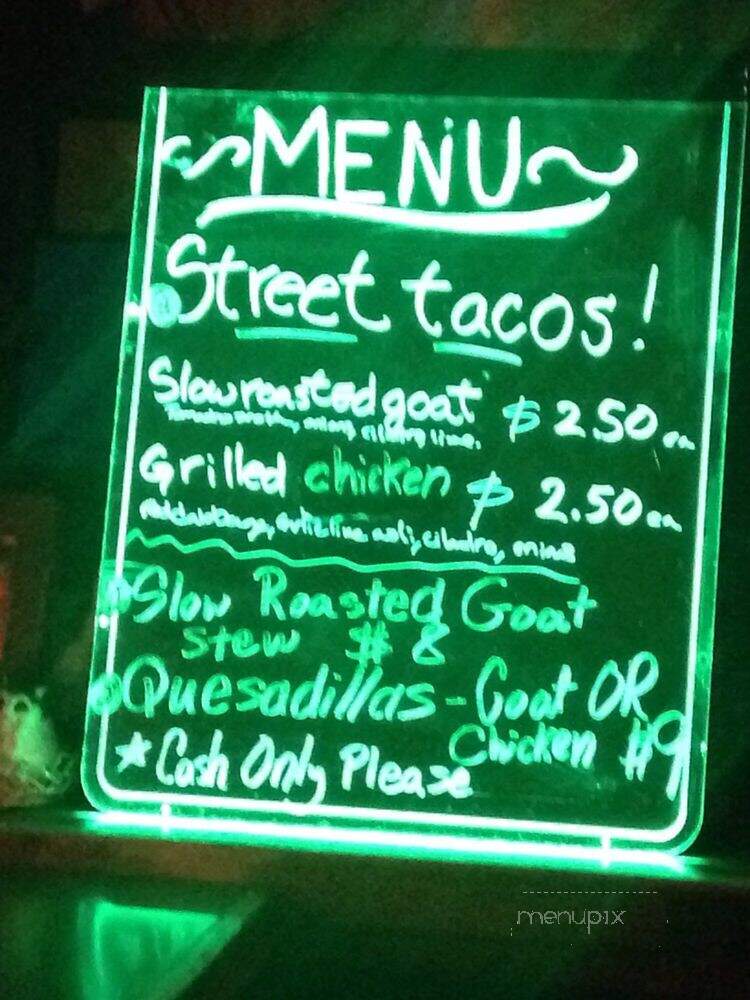 ~MENU~
Street tacos!
Slow roasted goat $ 2.50 ea
onions, cilantro, lime.
Grilled chicken $ 2.50 ea
cilantro, onions
Slow Roasted Goat
Stew $ 8
Quesadillas - Goat OR
Chicken $9
★ Cash Only Please
menupix